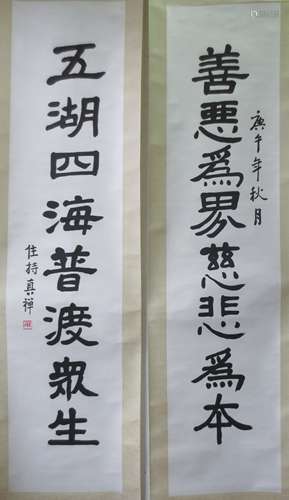 善惡為界慈悲為本
庚午年秋月
五湖四海普渡眾生
住持真禪